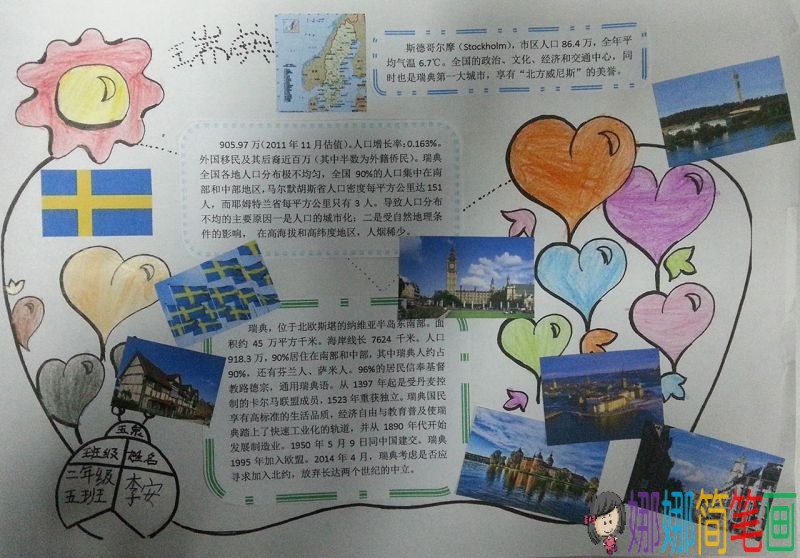 瑞典
斯德哥尔摩（Stockholm），市区人口 86.4 万，全年平
均气温 6.7℃。全国的政治、文化、经济和交通中心，同
时也是瑞典第一大城市，享有“北方威尼斯”的美誉。
905.97 万（2011 年 11 月估值），人口增长率：0.163%。
外国移民及其后裔近百万（其中半数为外籍侨民）。瑞典
全国各地人口分布极不均匀，全国 90%的人口集中在南
部和中部地区，马尔默胡斯省人口密度每平方公里达 151
人，而耶姆特兰省每平方公里只有 3 人。导致人口分布
不均的主要原因一是人口的城市化；二是受自然地理条
件的影响， 在高海拔和高纬度地区，人烟稀少。
瑞典，位于北欧斯堪的纳维亚半岛东南部。面
积约 45 万平方千米。海岸线长 7624 千米。人口
918.3 万，90%居住在南部和中部，其中瑞典人约占
90%，还有芬兰人、萨米人。96%的居民信奉基督
教路德宗，通用瑞典语。从 1397 年起是受丹麦控
制的卡尔马联盟成员，1523 年重获独立。瑞典国民
享有高标准的生活品质，经济自由与教育普及使瑞
典踏上了快速工业化的轨道，并从 1890 年代开始
发展制造业。1950 年 5 月 9 日同中国建交。瑞典
1995 年加入欧盟。2014 年 4 月，瑞典考虑是否应
寻求加入北约，放弃长达两个世纪的中立。
玉泉
班级 姓名
三年级
五班 李安
娜娜简笔画